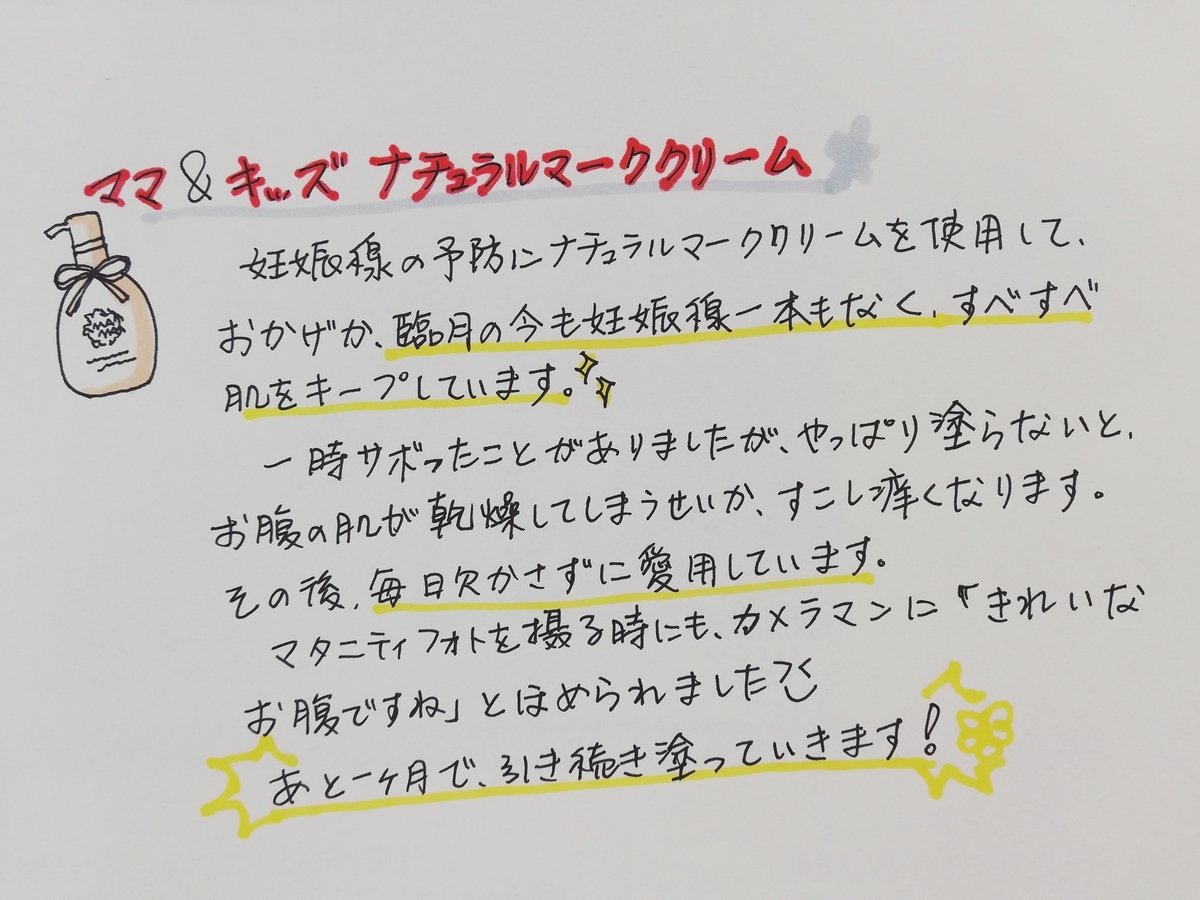 ママ & キッズ ナチュラルマーククリーム
妊娠線の予防にナチュラルマーククリームを使用して、
おかげか、臨月の今も妊娠線一本もなく、すべすべ
肌をキープしています。
一時サボったことがありましたが、やっぱり塗らないと、
お腹の肌が乾燥してしまうせいか、すこし痒くなります。
その後、毎日欠かさずに愛用しています。
マタニティフォトを撮る時にも、カメラマンに「きれいな
お腹ですね」とほめられました
あと一ヶ月で、引き続き塗っていきます!